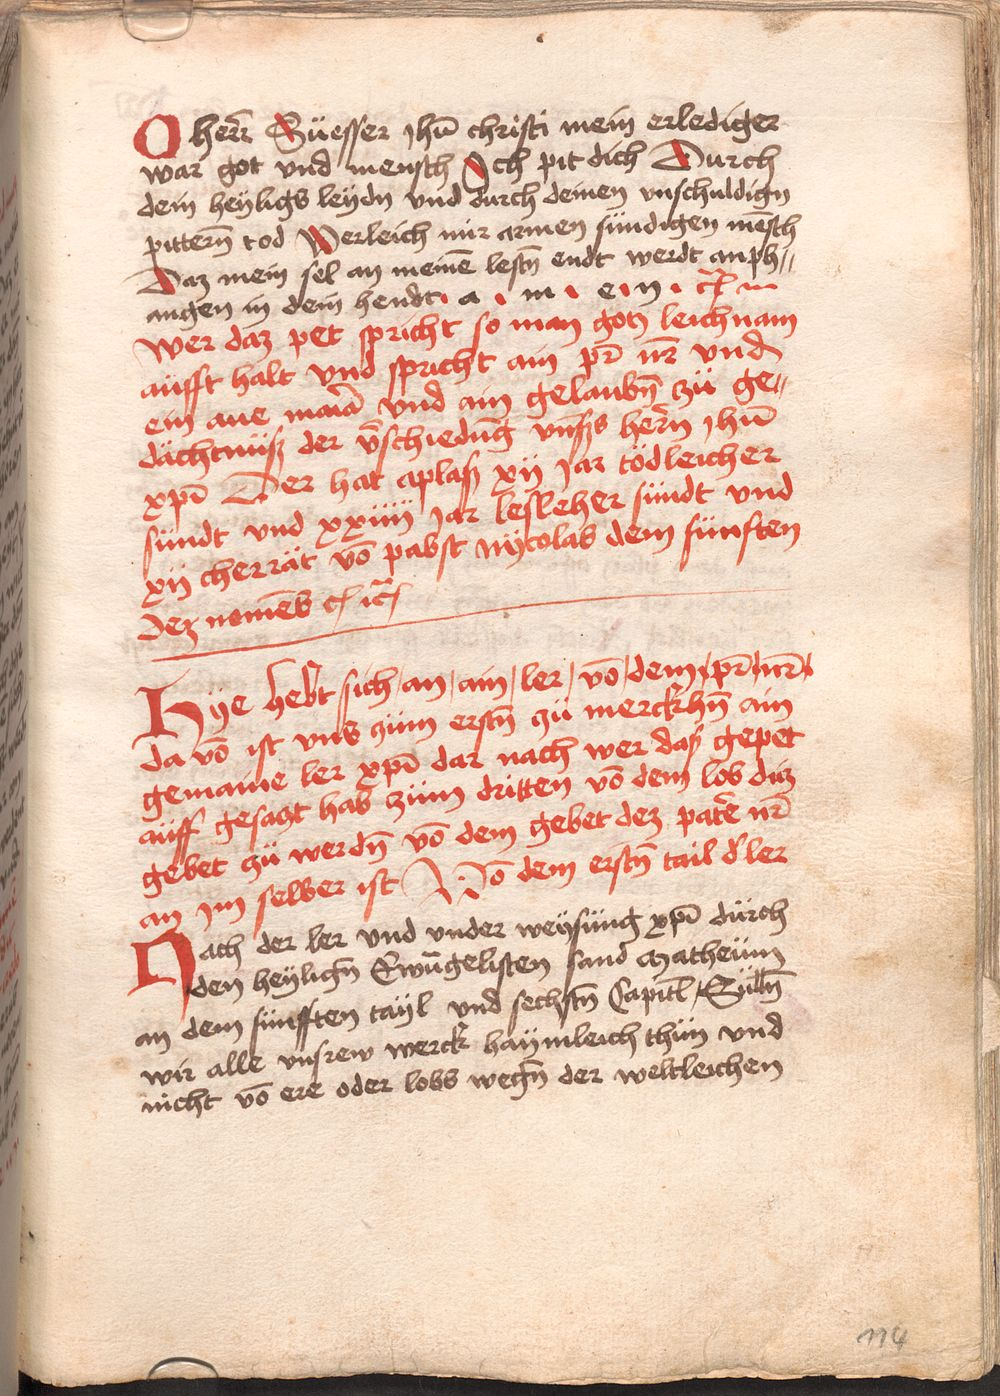 O herr̄ Süesser Jhū christi mein erlediger
war got vnd mensch Ich pit dich Durch
dein heyligs leydn vnd durch deinen vnschuldign
pittern̄ tod Verleich mir armen sündigen mēsch
Daz mein sel an meinē lestn̄ endt werdt anph//
angen in dein hendt · a · m · e · n ·
Wer daz pet spricht so man gotz leichnam
aüfft halt vnd spricht ain pr̄ nr̄ vnd
ein aue maiā vnd ain gelaubn̄ zü ge//
dächtnüß der v̄schiedūg vnsß herrn̄ Jhū
xpī Der hat aplaß xij Jar tödleicher
sündt vnd xxiiij Jar lesleher sündt vnd
xij cherrät vō pabst Nycolas dem fünften
dez nomēs
Hye hebt sich / an / ain / ler / vō / dem / pr̄ / nr̄
da vō ist vns züm erstn̄ zü merckhn̄ ain
gemaine ler xpī dar nach wer daß gepet
aüff gesagt hab züm dritten vō dem lob diz
gebet zü werdn̄ vō dem gebet dez patēr nr̄
an Jm selber ist Vō dem erstn̄ tail d' ler
Nach der ler vnd vnder weysüng xpī dürch
den heylign̄ Ewāgelisten sand Matheüm
an dem fünfften tayl vnd sechstn̄ Capitl Sülln̄
wir alle vnsrew werck haymleich thün vnd
nicht vō ere oder lobs wegn̄ der weltleichen
114